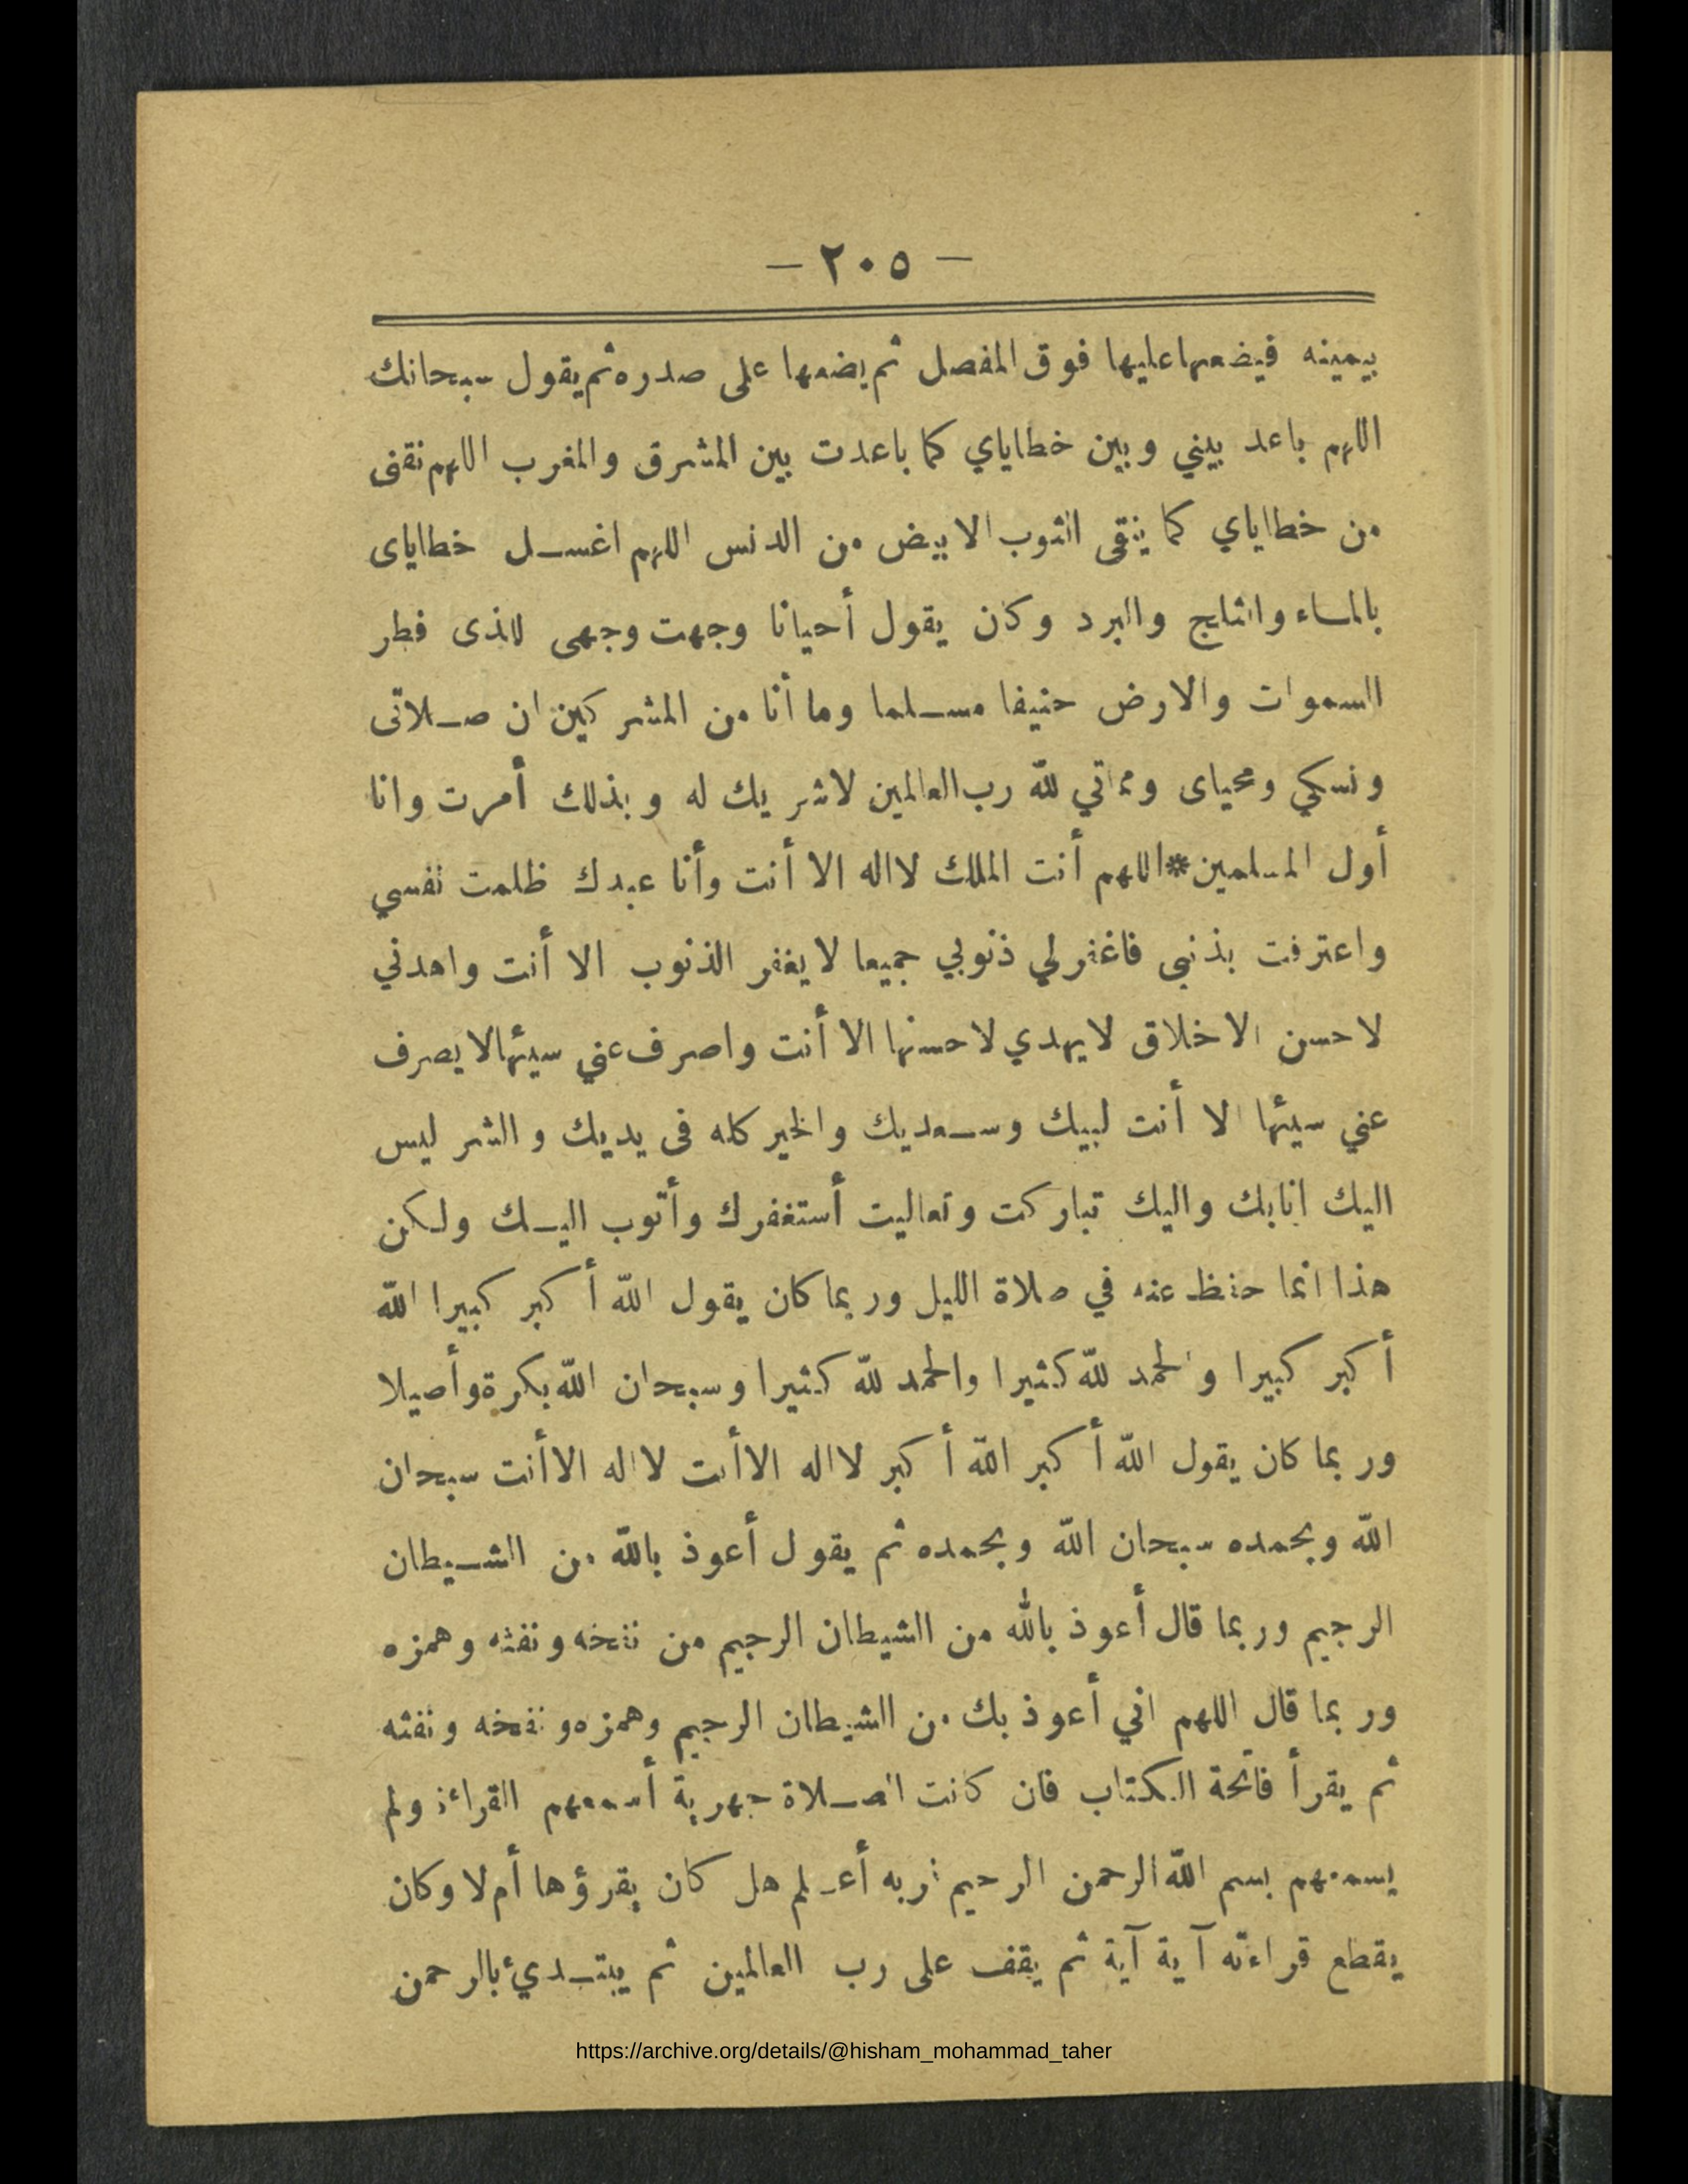 — ٢٠٥ —
بيمينه فيضعها عليها فوق المفصل ثم يضعها على صدره ثم يقول سبحانك
اللهم باعد بيني وبين خطاياي كما باعدت بين المشرق والمغرب اللهم نقنى
من خطاياي كما ينقى الثوب الابيض من الدنس اللهم اغســل خطاياى
بالمــاء والثلج والبرد وكان يقول أحيانا وجهت وجهى للذى فطر
السموات والارض حنيفا مســلما وما أنا من المشركين ان صــلاتى
ونسكي ومحياى ومماتي لله رب العالمين لاشريك له وبذلك أمرت وانا
أول المسلمين*اللهم أنت الملك لااله الا أنت وأنا عبدك ظلمت نفسي
واعترفت بذنبى فاغفرلي ذنوبي جميعا لايغفر الذنوب الا أنت واهدني
لاحسن الاخلاق لايهدي لاحسنها الا أنت واصرف عني سيئها لايصرف
عني سيئها الا أنت لبيك وســعديك والخير كله فى يديك والشر ليس
اليك انابك واليك تباركت وتعاليت أستغفرك وأتوب اليــك ولكن
هذا انما حفظ عنه في صلاة الليل وربما كان يقول الله أكبر كبيرا الله
أكبر كبيرا والحمد لله كثيرا والحمد لله كثيرا وسبحان الله بكرة وأصيلا
وربما كان يقول الله أكبر الله أكبر لااله الاأنت لااله الاأنت سبحان
الله وبحمده سبحان الله وبحمده ثم يقول أعوذ بالله من الشــيطان
الرجيم وربما قال أعوذ بالله من الشيطان الرجيم من نفخه ونفثه وهمزه
وربما قال اللهم اني أعوذ بك من الشيطان الرجيم وهمزه ونفخه ونفثه
ثم يقرأ فاتحة الكتاب فان كانت الصــلاة جهرية أسمعهم القراءة ولم
يسمعهم بسم الله الرحمن الرحيم فربه أعــلم هل كان يقرؤها أم لا وكان
يقطع قراءته آية آية ثم يقف على رب العالمين ثم يبتــديء بالرحمن
https://archive.org/details/@hisham_mohammad_taher